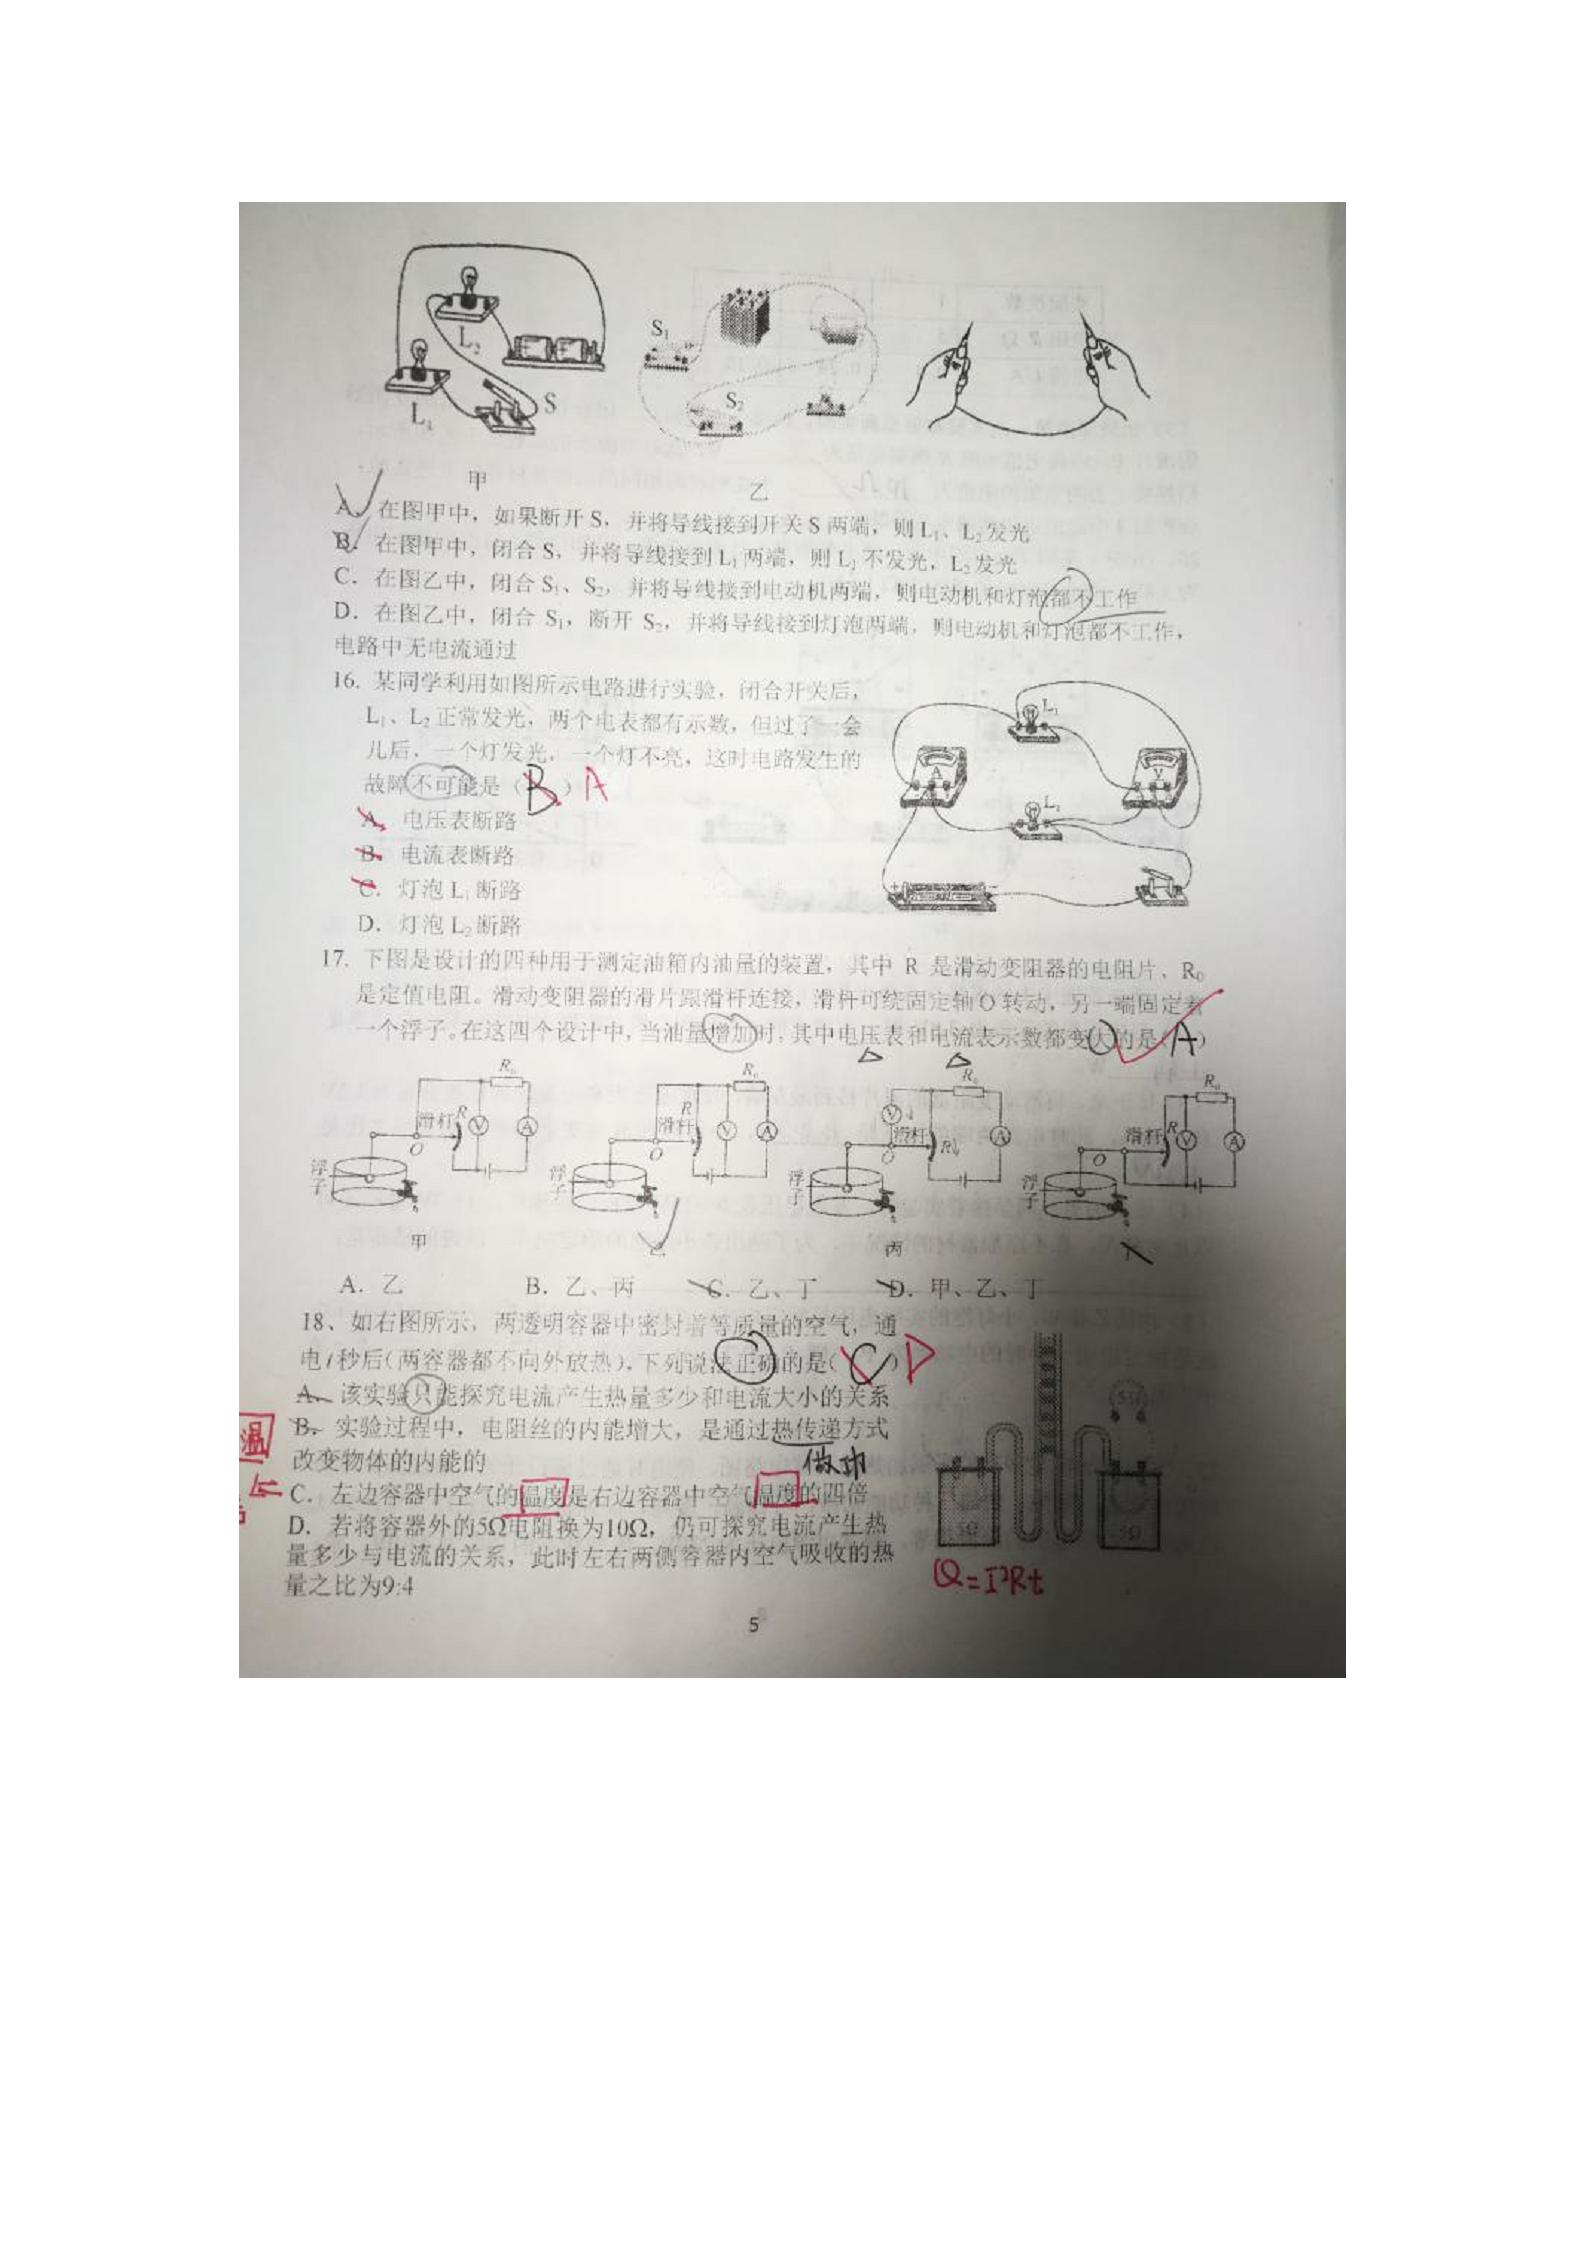 L₂
L₁
S
S₁
S₂
甲
乙
A. 在图甲中，如果断开 S，并将导线接到开关 S 两端，则 L₁、L₂ 发光
B. 在图甲中，闭合 S，并将导线接到 L₁ 两端，则 L₁ 不发光，L₂ 发光
C. 在图乙中，闭合 S₁、S₂，并将导线接到电动机两端，则电动机和灯泡都不工作
D. 在图乙中，闭合 S₁，断开 S₂，并将导线接到灯泡两端，则电动机和灯泡都不工作，
电路中无电流通过
16. 某同学利用如图所示电路进行实验，闭合开关后，
L₁、L₂ 正常发光，两个电表都有示数，但过了一会
儿后，一个灯发光，一个灯不亮，这时电路发生的
故障不可能是（B）A
A. 电压表断路
B. 电流表断路
C. 灯泡 L₁ 断路
D. 灯泡 L₂ 断路
L₁
A
V
17. 下图是设计的四种用于测定油箱内油量的装置，其中 R 是滑动变阻器的电阻片、R₀
是定值电阻。滑动变阻器的滑片跟滑杆连接，滑杆可绕固定轴 O 转动，另一端固定着
一个浮子。在这四个设计中，当油量增加时，其中电压表和电流表示数都变大的是（A）
R₀ R₀ R₀ R₀
滑杆 R V A 滑杆 R V A V 滑杆 R A 滑杆 R V A
O O O O
浮子 浮子 浮子 浮子
甲 乙 丙 丁
A. 乙 B. 乙、丙 C. 乙、丁 D. 甲、乙、丁
18、如右图所示，两透明容器中密封着等质量的空气，通
电 t 秒后（两容器都不向外放热），下列说法正确的是（C）D
A. 该实验只能探究电流产生热量多少和电流大小的关系
B. 实验过程中，电阻丝的内能增大，是通过热传递方式
改变物体的内能的
做功
温
C. 左边容器中空气的温度是右边容器中空气温度的四倍
D. 若将容器外的5Ω电阻换为10Ω，仍可探究电流产生热
量多少与电流的关系，此时左右两侧容器内空气吸收的热
量之比为9:4
5Ω
5Ω
5Ω
Q=I²Rt
5